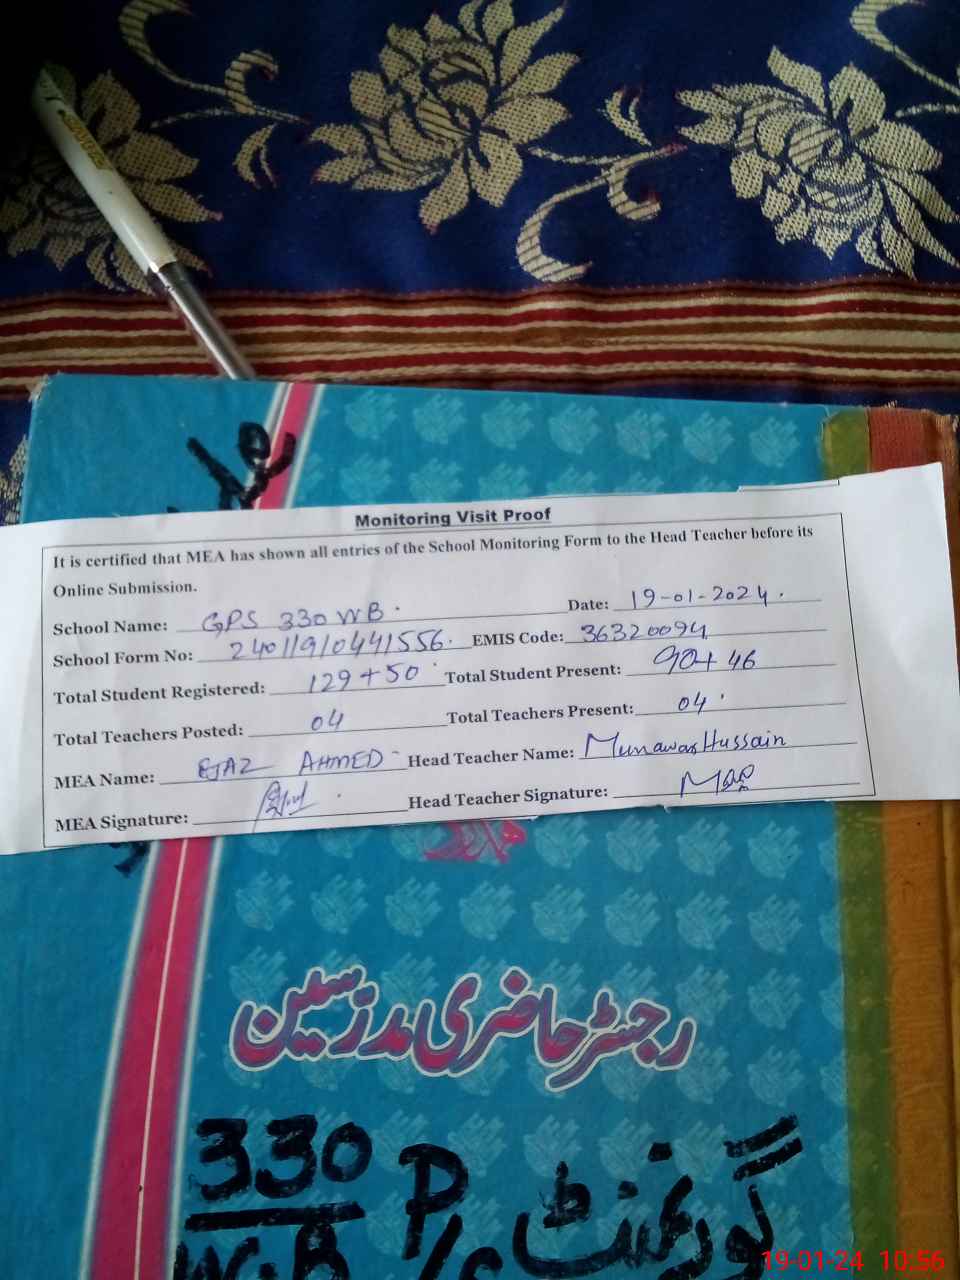 Monitoring Visit Proof
It is certified that MEA has shown all entries of the School Monitoring Form to the Head Teacher before its
Online Submission.
School Name: GPS 330 WB Date: 19-01-2024
School Form No: 240119/0441556 EMIS Code: 36320094
Total Student Registered: 129+50 Total Student Present: 90+46
Total Teachers Posted: 04 Total Teachers Present: 04
MEA Name: EJAZ AHMED Head Teacher Name: Munawar Hussain
MEA Signature: Head Teacher Signature:
رجسٹر حاضری مدرسین
330 P/S گورنمنٹ
W.B
19-01-24 10:56